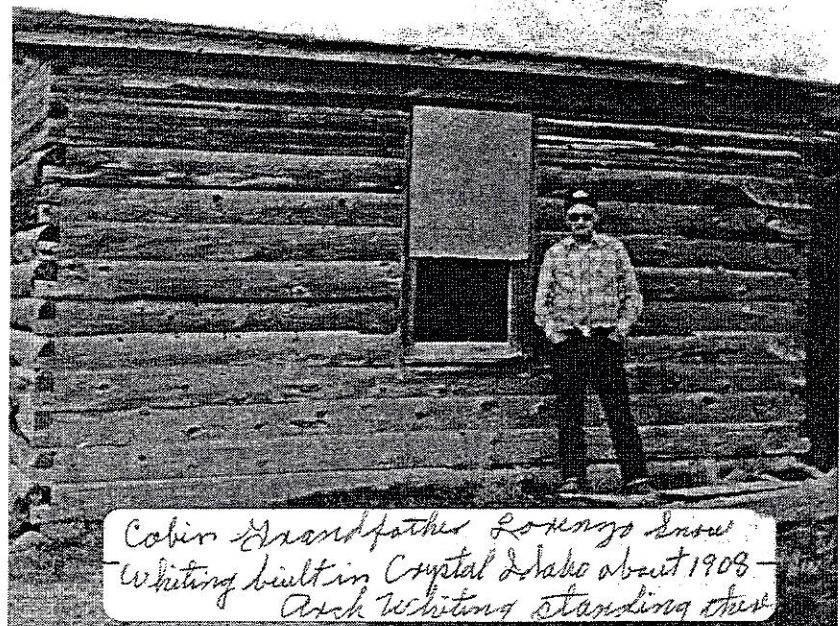 Cabin Grandfather Lorenzo Snow
Whiting built in Crystal Idaho about 1908
Arch Whiting standing there